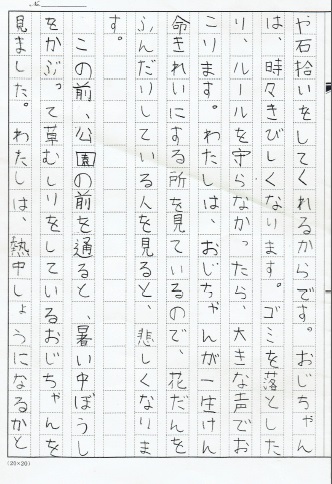 や石拾いをしてくれるからです。おじちゃん
は、時々きびしくなります。ゴミを落とした
り、ルールを守らなかったら、大きな声でお
こります。わたしは、おじちゃんが一生けん
命きれいにする所を見ているので、花だんを
ふんだりしている人を見ると、悲しくなりま
す。
この前、公園の前を通ると、暑い中ぼうし
をかぶって草むしりをしているおじちゃんを
見ました。わたしは、熱中しょうになるかと
(20×20)